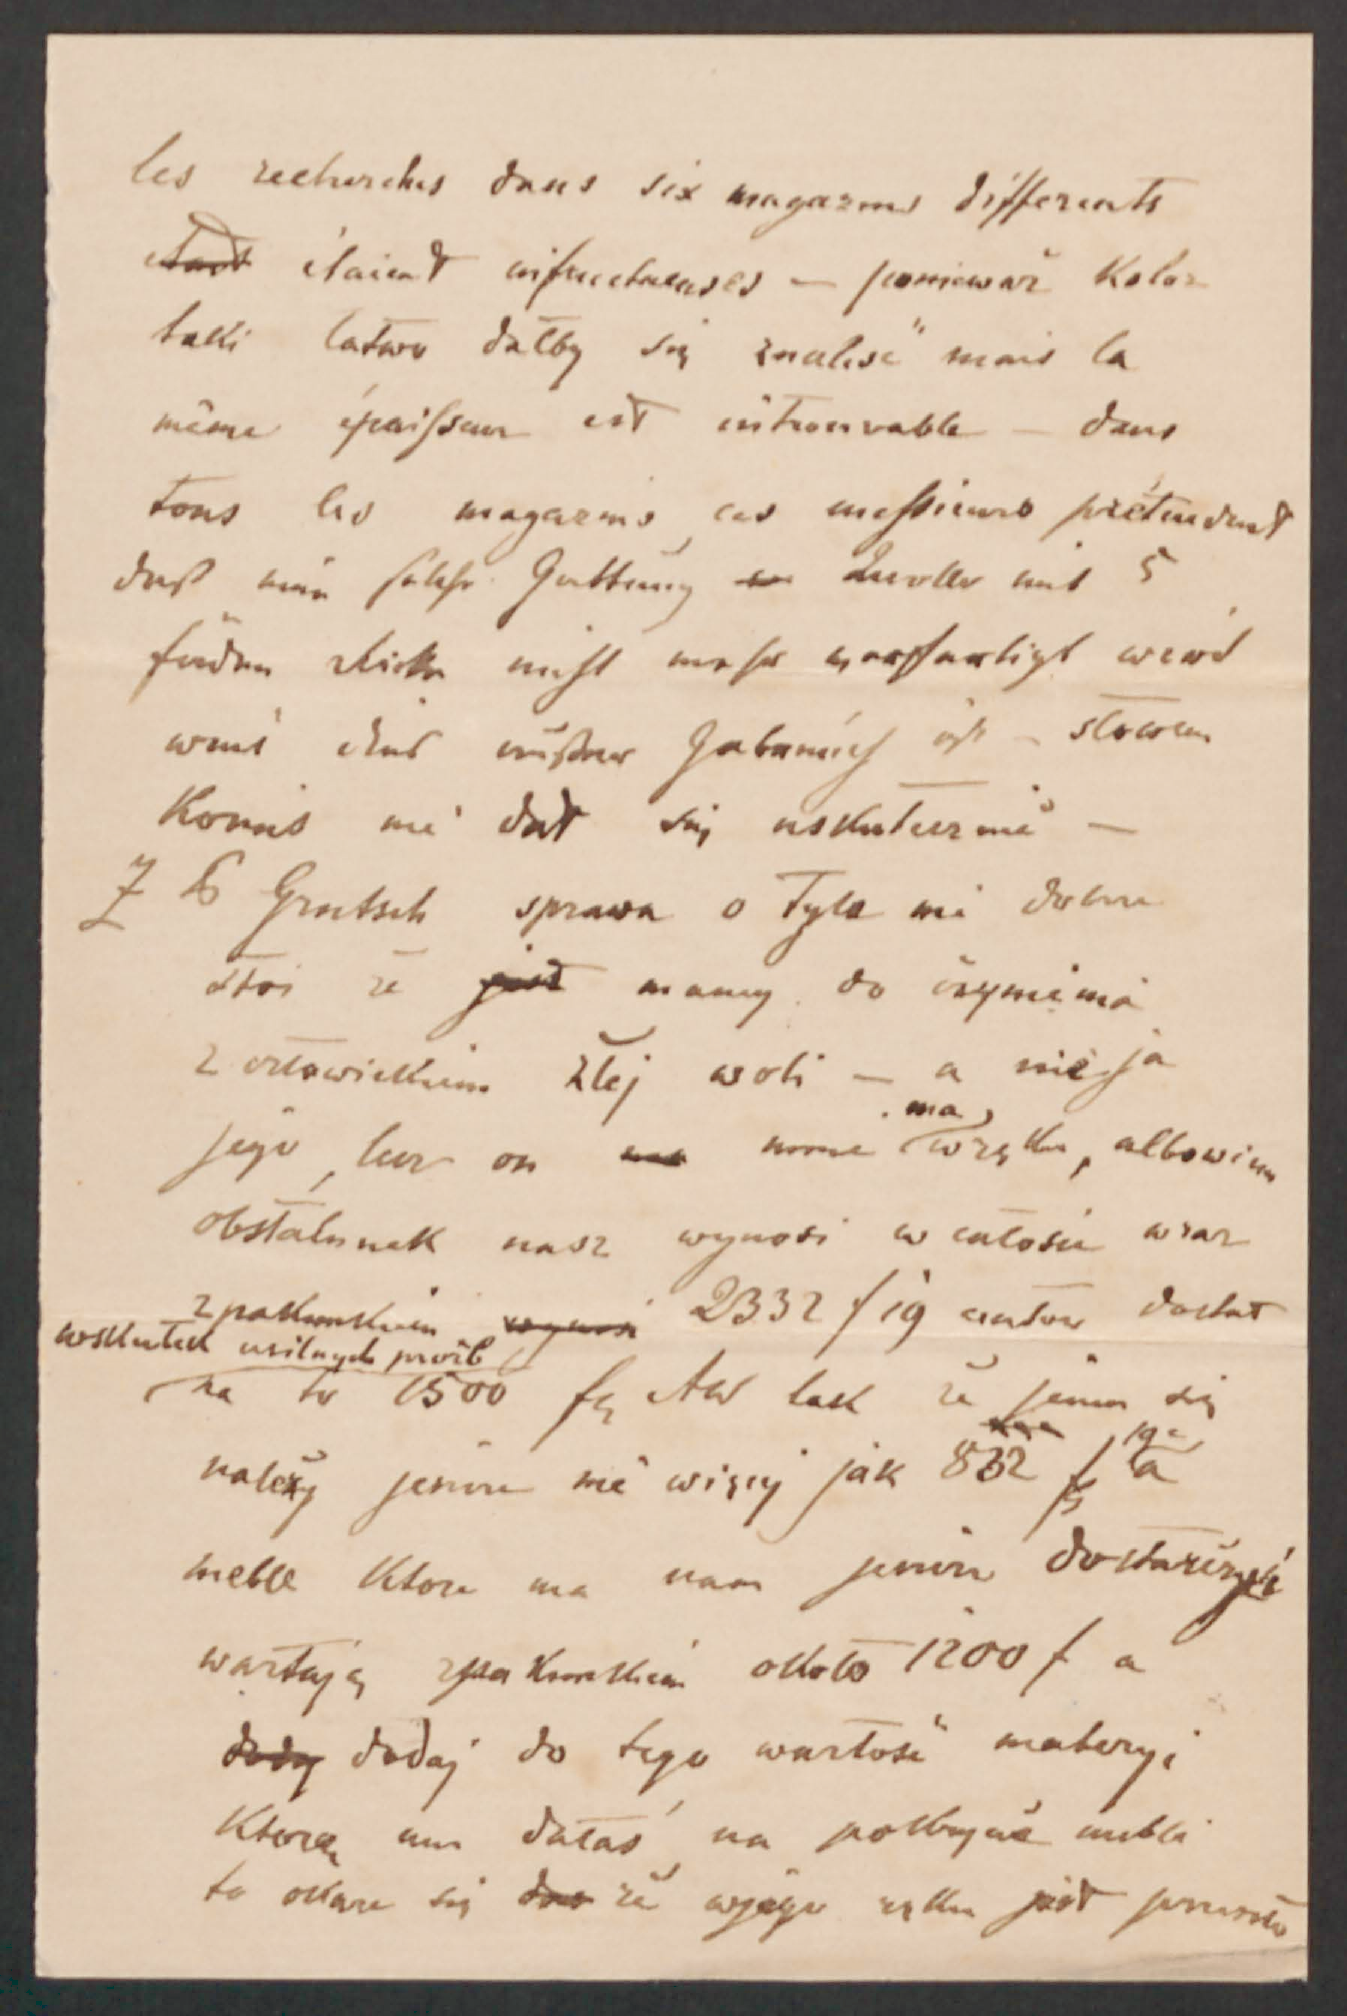 les recherches dans six magazins differents
étaient infructueuses — ponieważ Kolor
taki łatwo dałby się znaleść mais la
même épaisseur est introuvable — dans
tous les magazins, ces messieurs prétendent
daß man solche Gattung Zwolle mit 5
fäden nicht mehr verfertigt wird
außer Gebrauch ist — słowem
Komis nie dał się uskutecznić —
Z Grætsch sprawa o tyle nie dobrze
stoi że jest mamy do czynienia
z człowiekiem złej woli — a nie ja
jego, lecz on mnie ma w ręku, albowiem
obstalunek nasz wynosi w całości wraz
z pakunkiem wynosi 2332 f 19 centów dostał
wskutek usilnych prośb
na to 1500 fl AW tak że jemu się
należy jeszcze nie więcej jak 832 fl 19 c a
meble które ma nam jeszcze dostarczyć
wartają z pakunkiem około 1200 f a
dodaj do tego wartość materyi
Którą mu dałaś na pokrycie mebli
to okaże się że w jego ręku jest przeszło